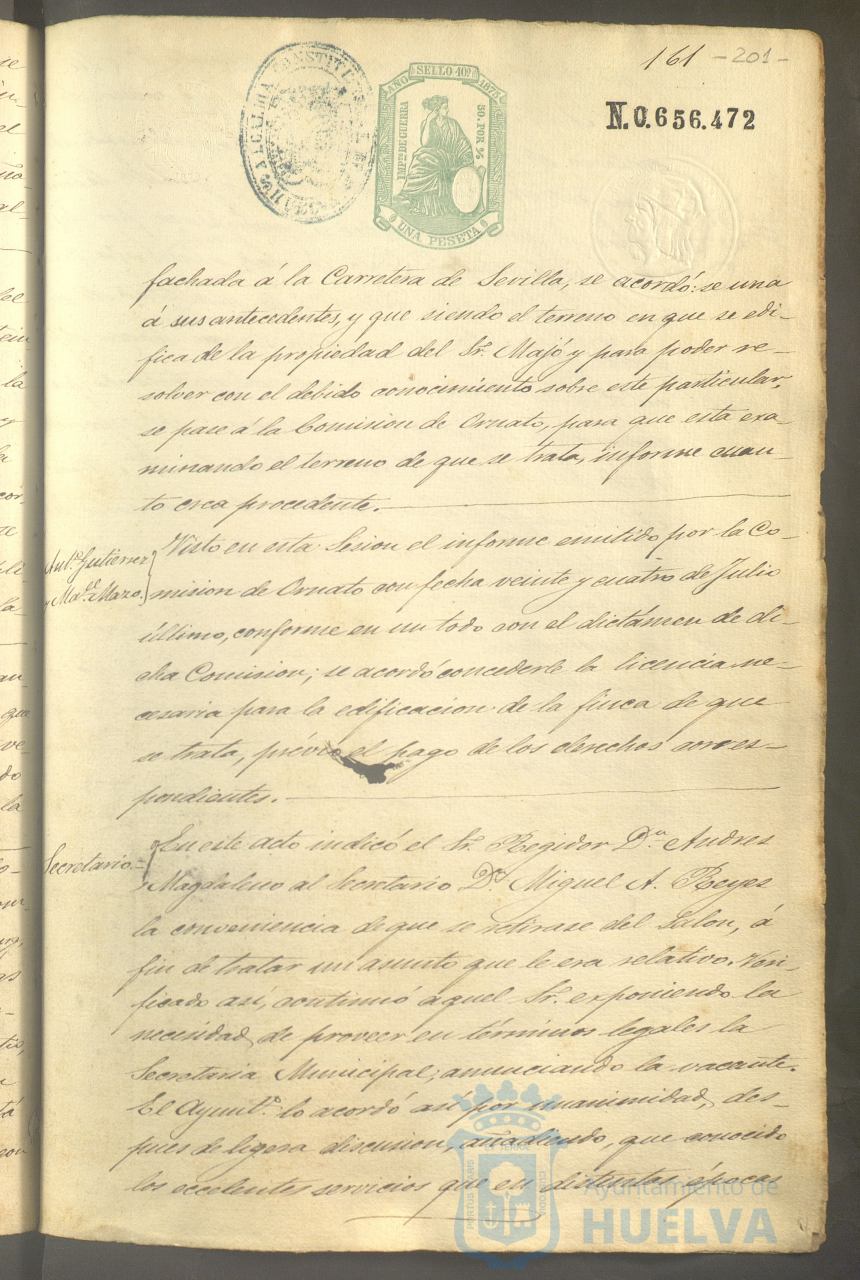 161 - 201 -
N.0.656.472
ALCALDIA CONSTITUCIONAL DE HUELVA
AÑO SELLO 10º 1875
IMPto DE GUERRA
50 POR %
UNA PESETA
fachada á la Carretera de Sevilla, se acordó: se una
á sus antecedentes, y que siendo el terreno en que se edi-
fica de la propiedad del Sr. Majó y para poder re-
solver con el debido conocimiento sobre este particular,
se pase á la Comision de Ornato, para que esta exa-
minando el terreno de que se trata, informe cuan-
to crea procedente.
Antº Gutierrez
y Mael Mazo.
Visto en esta Sesion el informe emitido por la Co-
mision de Ornato con fecha veinte y cuatro de Julio
último, conforme en un todo con el dictámen de di-
cha Comision; se acordó concederle la licencia ne-
cesaria para la edificacion de la finca de que
se trata, prévio el pago de los derechos corres-
pondientes.
Secretario.=
En este acto indicó el Sr. Regidor Dn Andres
Magdaleno al Secretario Dn Miguel A. Reyes
la conveniencia de que se retirase del Salon, á
fin de tratar un asunto que le era relativo. Veri-
ficado así, continuó aquel Sr. exponiendo la
necesidad de proveer en términos legales la
Secretaria Municipal; anunciando la vacante.
El Ayuntº lo acordó así por unanimidad, des-
pues de ligera discusion, añadiendo, que conocido
los eccelentes servicios que en distintas épocas
Ayuntamiento de
HUELVA